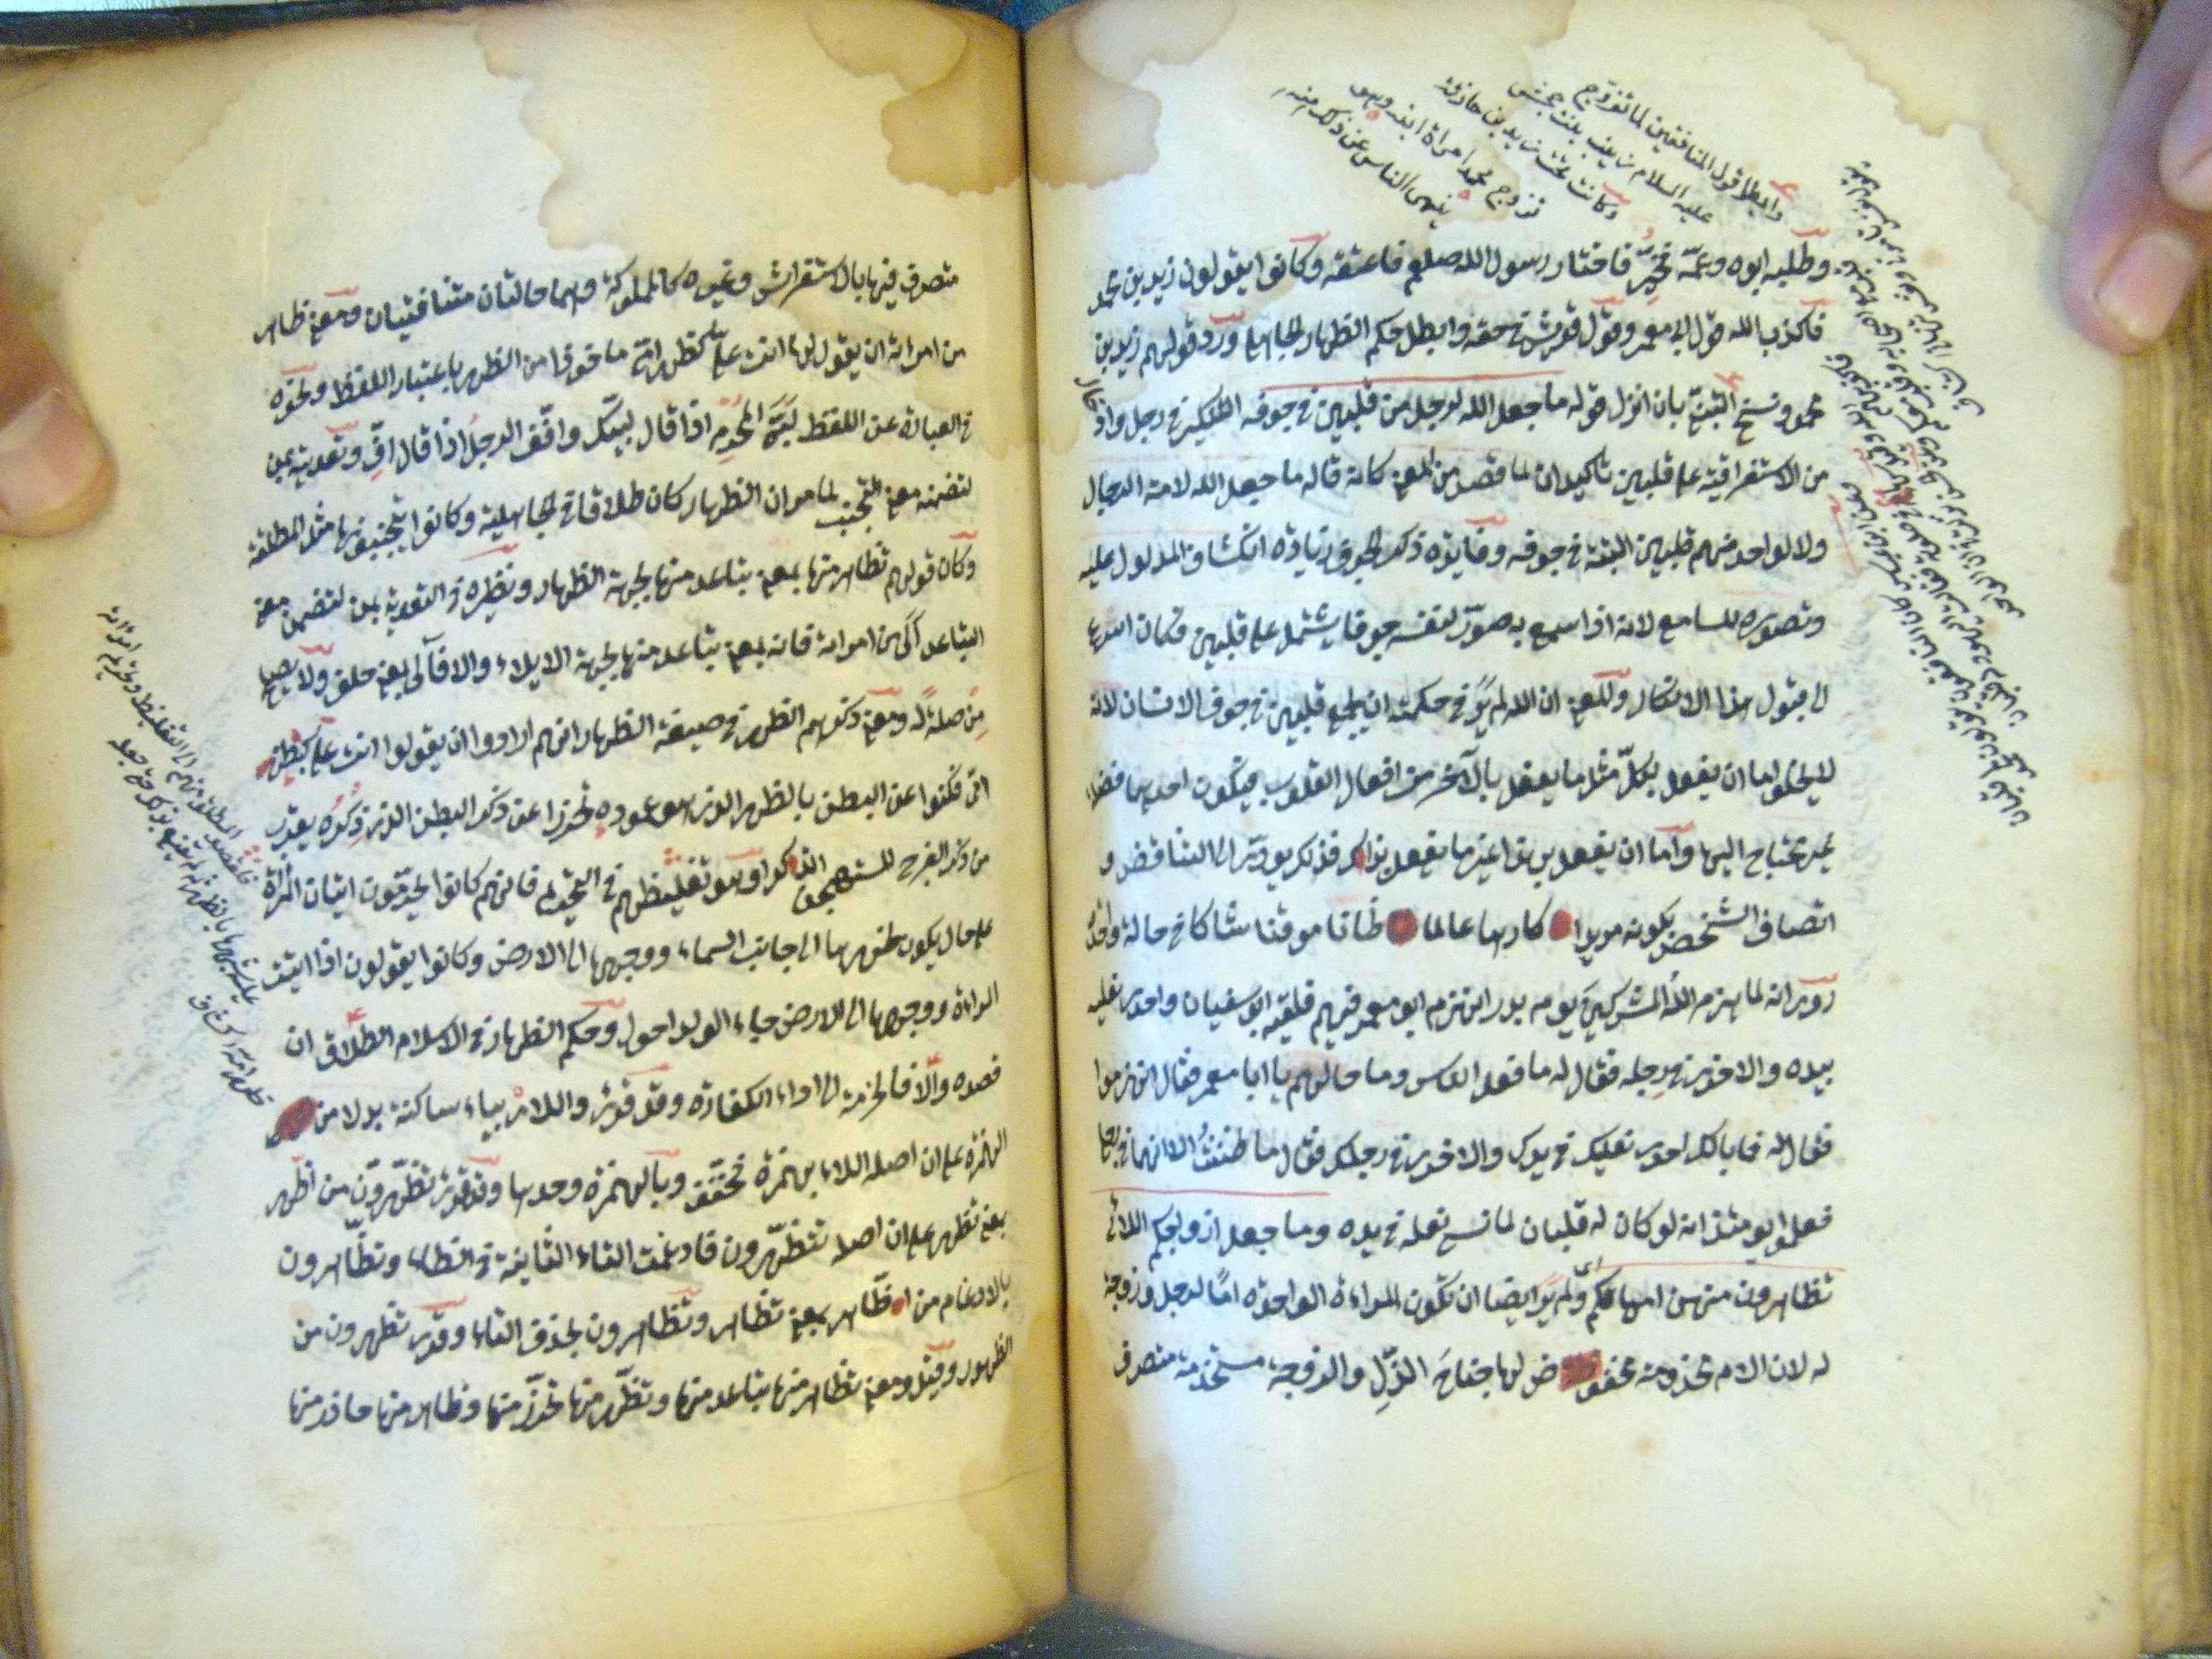 وابطل قول المنافقين لما تزوج
عليه السلام زينب بنت جحش
وكانت تحت زيد بن حارثة
تزوج محمد امراة ابنه وهو
ينهى الناس عن ذلك منه
وطلبه ابوه وعمّه فخُيِّر فاختار رسول الله صلعم فاعتقه وكانوا يقولون زيد بن محمد
فاكذب الله قول ابي معمر وقول قريش في حقه وابطل حكم الظهار الجاهلي ورد قولهم زيد بن
محمد ونسخ التبنيّ بان انزل قوله ما جعل الله لرجل من قلبين في جوفه التنكير في رجل وادخال
من الاستغراقية على قلبين تاكيدان لما قصد من المعنى كانه قال ما جعل الله لامة الرجال
ولا لواحد منهم قلبين البتة في جوفه وفايدة ذكر الجوف زيادة انكشاف المدلول عليه
وتصوره للسامع لانه اذا سمع به صوّر لنفسه جوفا يشتمل على قلبين فكان اسرع
الى قبول هذا الانكار والمعنى ان الله لم ير في حكمته ان يجمع قلبين في جوف الانسان لانه
لا يخلوا اما ان يفعل بكلّ مثل ما يفعل بالآخر من افعال القلوب فيكون احدهما فضلة
غير محتاج اليها واما ان يفعل بهذا غير ما يفعل بذاك فذلك يودّي الى التناقض و
اتصاف الشخص بكونه مريدا كارها عالما ظانا موقنا شاكا في حالة واحدة
روي انه لما هزم اللهُ المشركين يوم بدر انهزم ابو معمر فيهم فلقيه ابو سفيان واحدى نعليه
بيده والاخرى في رجله فقال له ما فعل الناس وما حالهم يا ابا معمر فقال انهزموا
فقال له فما بالك احدى نعليك في يدك والاخرى في رجلك فقال ما ظننتُ الا انهما في رجلي
فعلموا يومئذ انه لو كان له قلبان لما نسي نعله في يده وما جعل ازواجكم اللائي
تظاهرون منهن امهاتكم اي ولم ير ايضا ان تكون المراءة الواحدة امّا لرجل وزوجة
له لان الام مخدومة مخفوض لها جناحَ الذّلِ والزوجة مستخدمة متصرف
متصرف فيها بالاستفراش وغيره كالمملوكة وهما حالتان متنافيتان ومعنى ظاهر
من امراته ان يقول لها انت عليّ كظهر امّي ماخوذا من الظهر باعتبار اللفظ ونحوه
في العبارة عن اللفظ لبَّى المُحْرِم اذا قال لبيّك وافّف الرجلُ اذا قال افّ وتعديته بمن
لتضمنه معنى التجنب لما مر ان الظهار كان طلاقا في الجاهلية وكانوا يتجنبونها مثل المطلقة
وكان قولهم تظاهر منها بمعنى يتباعد منها لجهة الظهار ونظيره في التعدية بمن لتضمن معنى
التباعد آلى من امراته فانه بمعنى يتباعد منها لجهة الايلاء والا فآلى بمعنى حلف ولا يصح
من صلة له ومعنى ذكرهم الظهر في صيغة الظهار انهم ارادوا ان يقولوا انت عليّ كبطن
امّي فكنوا عن البطن بالظهر الذي هو عموده تحرزا عن ذكر البطن الذي ذكره يقرب
من ذكر الفرج المستهجن الذكر او هو تغليظهم في التحريم فانهم كانوا يحرّمون اتيان المرأة
على حال يكون ظهرها الى جانب السماء ووجهها الى الارض وكانوا يقولون اذا اتيت
المراءة ووجهها الى الارض جاء الولد احول وحكم الظهار في الاسلام الطلاق ان
قصده والّا فالحرمة الى اداء الكفارة وقد قرئ واللاي بياء ساكنة بدلا من
الهمزة على ان اصله اللاء بهمزة مخفّفة وبالهمزة وحدها وقد قرئ تظّهّرون من اظّهر
بمعنى تظهر على ان اصله تتظهّرون فادغمت التاء الثانية في الظاء وتظّاهرون
بالادغام من اظّاهر بمعنى تظاهر وتظاهرون بحذف التاء وقرئ تظهرون من
الظهور وقيل ومعنى تظاهر منها يتباعد منها وتظّهر منها تحرّز منها وظاهر منها حاذر منها